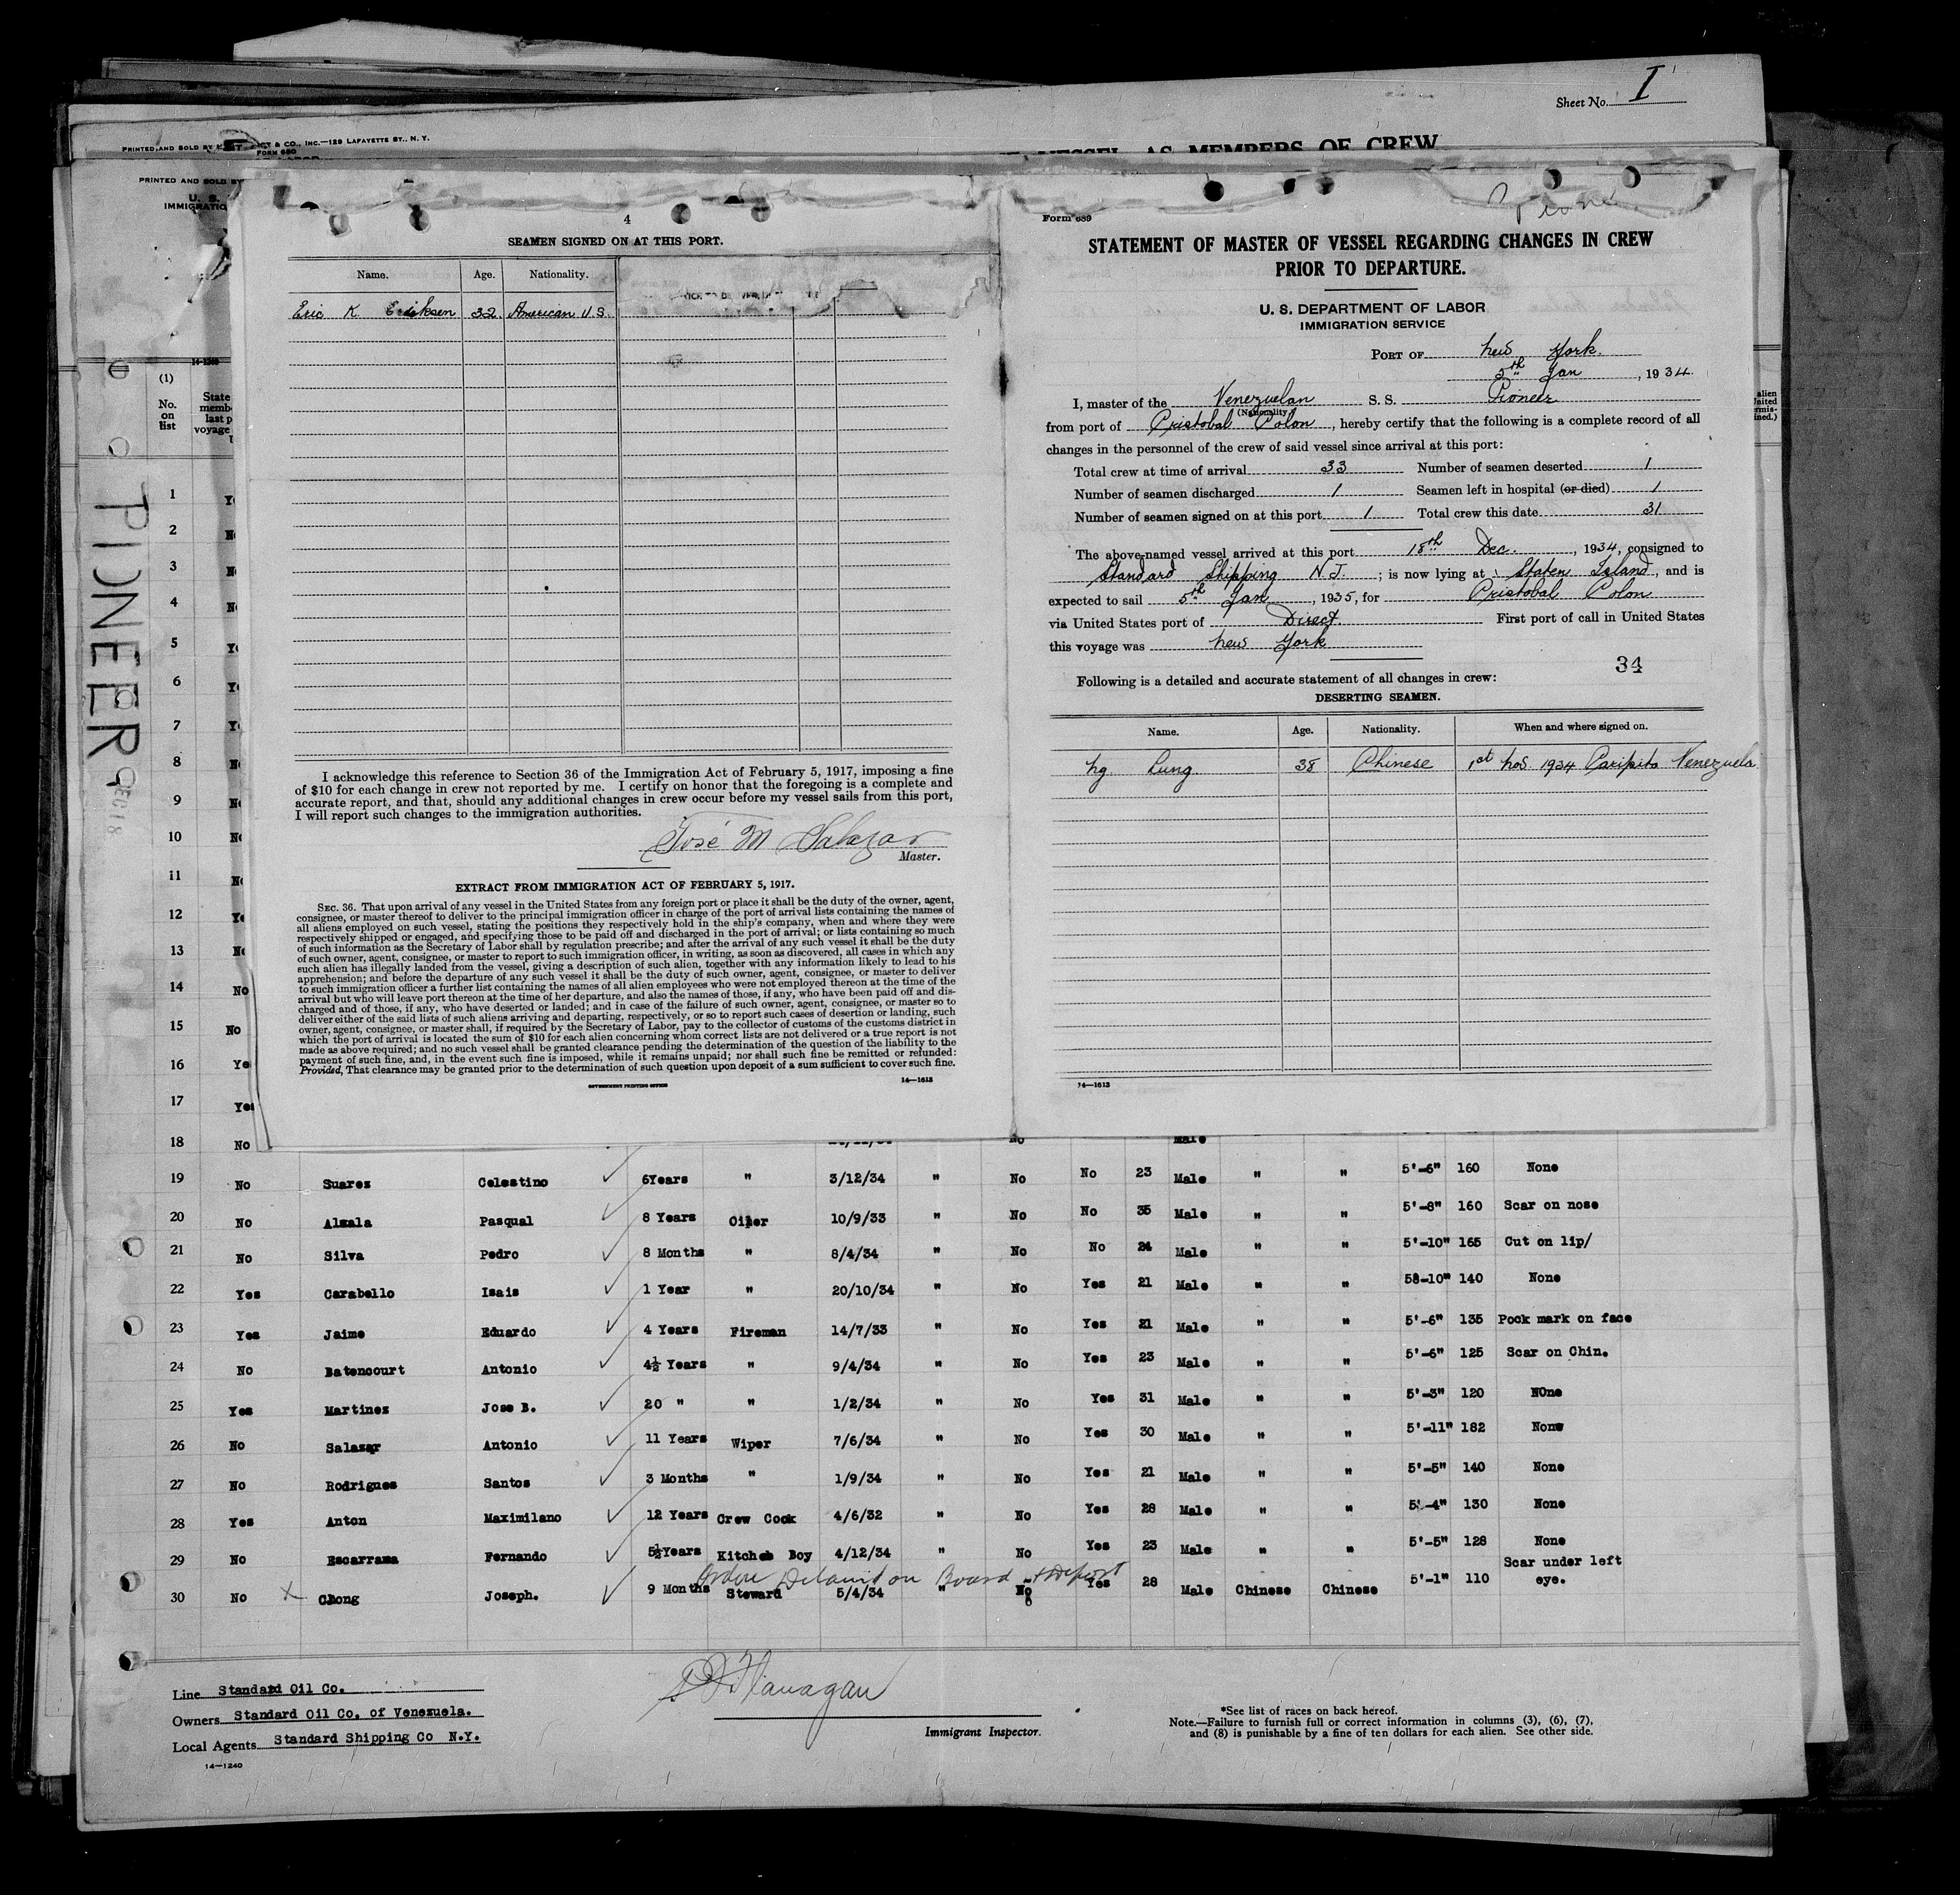 Sheet No. I
PRINTED AND SOLD BY & CO., INC.—129 LAFAYETTE ST., N. Y.
FORM 680
VESSEL AS MEMBERS OF CREW
PRINTED AND SOLD BY
U. S.
IMMIGRATIO
14-1240
(1)
No.
on
list
State
memb
last p
voyage
PIONEER
DEC 18
4
SEAMEN SIGNED ON AT THIS PORT.
Name. Age. Nationality.
Eric K Eriksen 32. American U.S.
I acknowledge this reference to Section 36 of the Immigration Act of February 5, 1917, imposing a fine
of $10 for each change in crew not reported by me. I certify on honor that the foregoing is a complete and
accurate report, and that, should any additional changes in crew occur before my vessel sails from this port,
I will report such changes to the immigration authorities.
José M Salazar
Master.
EXTRACT FROM IMMIGRATION ACT OF FEBRUARY 5, 1917.
SEC. 36. That upon arrival of any vessel in the United States from any foreign port or place it shall be the duty of the owner, agent,
consignee, or master thereof to deliver to the principal immigration officer in charge of the port of arrival lists containing the names of
all aliens employed on such vessel, stating the positions they respectively hold in the ship's company, when and where they were
respectively shipped or engaged, and specifying those to be paid off and discharged in the port of arrival; or lists containing so much
of such information as the Secretary of Labor shall by regulation prescribe; and after the arrival of any such vessel it shall be the duty
of such owner, agent, consignee, or master to report to such immigration officer, in writing, as soon as discovered, all cases in which any
such alien has illegally landed from the vessel, giving a description of such alien, together with any information likely to lead to his
apprehension; and before the departure of any such vessel it shall be the duty of such owner, agent, consignee, or master to deliver
to such immigration officer a further list containing the names of all alien employees who were not employed thereon at the time of the
arrival but who will leave port thereon at the time of her departure, and also the names of those, if any, who have been paid off and dis-
charged and of those, if any, who have deserted or landed; and in case of the failure of such owner, agent, consignee, or master so to
deliver either of the said lists of such aliens arriving and departing, respectively, or so to report such cases of desertion or landing, such
owner, agent, consignee, or master shall, if required by the Secretary of Labor, pay to the collector of customs of the customs district in
which the port of arrival is located the sum of $10 for each alien concerning whom correct lists are not delivered or a true report is not
made as above required; and no such vessel shall be granted clearance pending the determination of the question of the liability to the
payment of such fine, and, in the event such fine is imposed, while it remains unpaid; nor shall such fine be remitted or refunded:
Provided, That clearance may be granted prior to the determination of such question upon deposit of a sum sufficient to cover such fine.
GOVERNMENT PRINTING OFFICE 14—1613
Form 689
STATEMENT OF MASTER OF VESSEL REGARDING CHANGES IN CREW
PRIOR TO DEPARTURE.
U. S. DEPARTMENT OF LABOR
IMMIGRATION SERVICE
PORT OF New York.
5th Jan, 1934
I, master of the Venezuelan S. S. Pioneer
(Nationality)
from port of Cristobal Colon, hereby certify that the following is a complete record of all
changes in the personnel of the crew of said vessel since arrival at this port:
Total crew at time of arrival 33 Number of seamen deserted 1
Number of seamen discharged 1 Seamen left in hospital (or died) 1
Number of seamen signed on at this port 1 Total crew this date 31
The above-named vessel arrived at this port 18th Dec., 1934, consigned to
Standard Shipping N J.; is now lying at Staten Island, and is
expected to sail 5th Jan, 1935, for Cristobal Colon
via United States port of Direct. First port of call in United States
this voyage was New York
34
Following is a detailed and accurate statement of all changes in crew:
DESERTING SEAMEN.
Name. Age. Nationality. When and where signed on.
Ng. Lung 38 Chinese 1st Nov 1934 Caripito Venezuela
14—1613
1
2
3
4
5
6
7
8
9
10
11
12
13
14 No
15 No
16 Ye
17 Yes
18 No No Male
19 No Suarez Celestino 6Years " 3/12/34 " No No 23 Male " " 5'-6" 160 None
20 No Alzala Pasqual 8 Years Oiler 10/9/33 " No No 35 Male " " 5'-8" 160 Scar on nose
21 No Silva Pedro 8 Months " 8/4/34 " No No 24 Male " " 5'-10" 165 Cut on lip/
22 Yes Carabello Isais 1 Year " 20/10/34 " No Yes 21 Male " " 58-10" 140 None
23 Yes Jaime Eduardo 4 Years Fireman 14/7/33 " No Yes 21 Male " " 5'-6" 135 Pock mark on face
24 No Batencourt Antonio 4½ Years " 9/4/34 " No Yes 23 Male " " 5'-6" 125 Scar on Chin.
25 Yes Martinez Jose B. 20 " " 1/2/34 " No Yes 31 Male " " 5'-3" 120 NOne
26 No Salazar Antonio 11 Years Wiper 7/6/34 " No Yes 30 Male " " 5'-11" 182 None
27 No Rodrigues Santos 3 Months " 1/9/34 " No Yes 21 Male " " 5'-5" 140 None
28 Yes Anton Maximilano 12 Years Crew Cook 4/6/32 " No Yes 28 Male " " 5'-4" 130 None
29 No Escarrama Fernando 5½Years Kitchen Boy 4/12/34 " No Yes 23 Male " " 5'-5" 128 None
Order Detained on Board & Deport
30 No X Chong Joseph. 9 Months Steward 5/4/34 " No Yes 28 Male Chinese Chinese 5'-1" 110 Scar under left eye.
Line Standard Oil Co.
Owners Standard Oil Co. of Venezuela.
Local Agents Standard Shipping Co N.Y.
14—1240
Flanagan
Immigrant Inspector.
*See list of races on back hereof.
Note.—Failure to furnish full or correct information in columns (3), (6), (7),
and (8) is punishable by a fine of ten dollars for each alien. See other side.